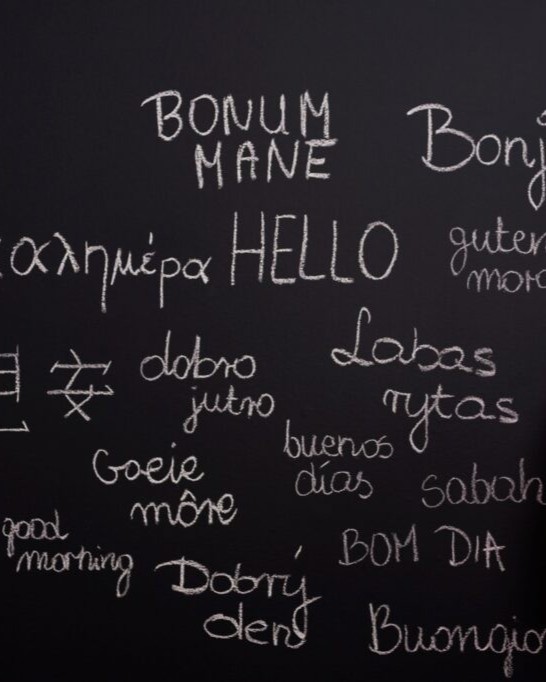 BONUM
MANE
Bonj
αλημέρα
HELLO
guten
morg
dobro
jutro
Labas
rytas
Goeie
môre
buenos
días
sabah
good
morning
BOM DIA
Dobrý
deň
Buongio